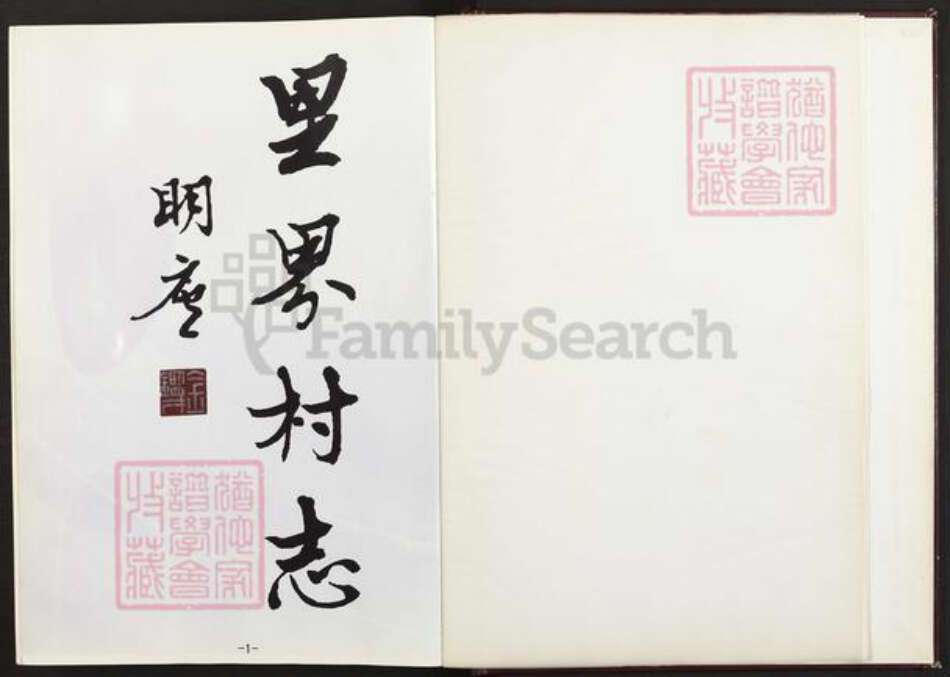 猶他家
譜學會
收藏
里界村志
明產
猶他家
譜學會
收藏
-1-
FamilySearch